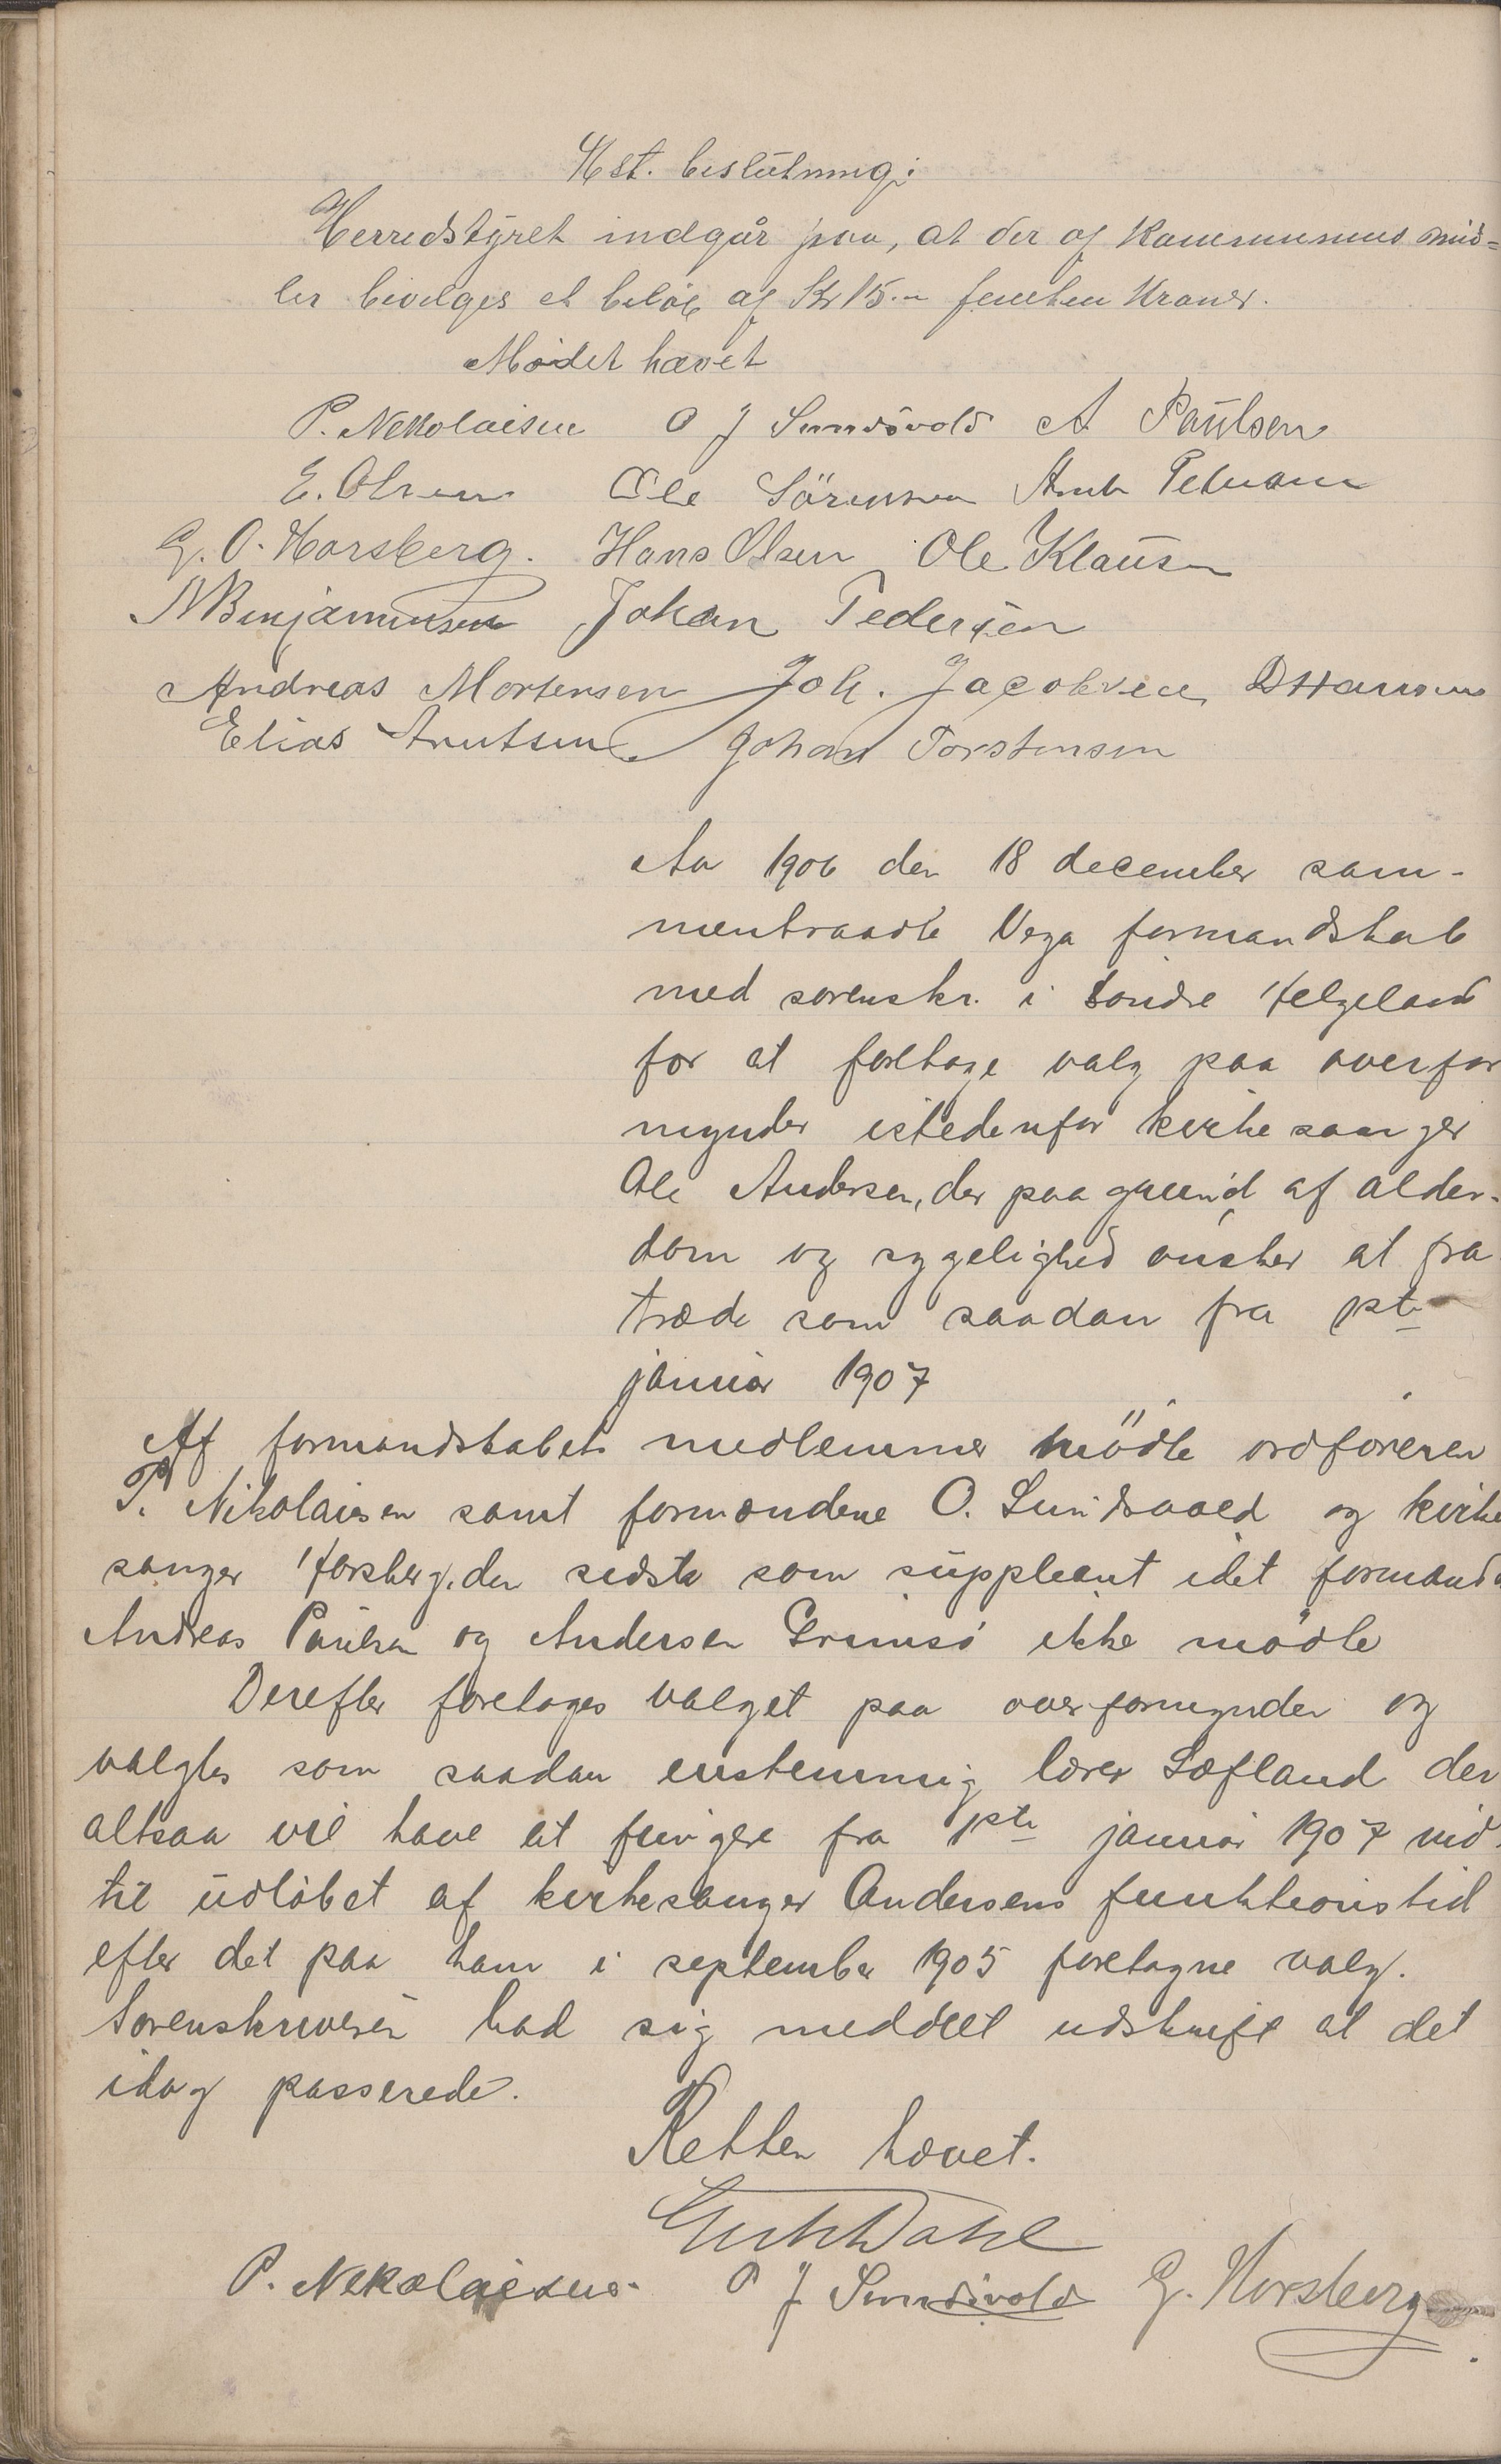 Hst. beslutning:
Herredstyret indgår paa, at der af Kommunens mid=
ler bevilges et beløb af Kr 15.- femten Kroner.
Mødet hævet
P. Nekolaisen O J Sundsvold A Paulsen
E. Olsen Ole Sörensen Petersen
G. O. Horsberg. Hans Olsen Ole Klausen
N Benjaminsen Johan Pedersen
Andreas Mortensen Joh. Jacobsen D Hansen
Elias Arntsen Johan Torstensen
Aar 1906 den 18 december sam-
mentraadte Vega formandskab
med sorenskr. i Søndre Helgeland
for at foretage valg paa overfor
mynder istedenfor kirkesanger
Ole Andersen, der paa grund af alder-
dom og sygelighed ønsker at fra
træde som saadan fra 1ste
januar 1907
Af formandskabets medlemmer mödte ordføreren
P. Nikolaisen samt formændene O. Sundsvold og kirke
sanger Horsberg, den sidste som suppleant idet formænd
Andreas Paulsen og Andersen Grimsö ikke mödte
Derefter foretoges valget paa overformynder og
valgtes som saadan enstemmig lærer Sæfland der
altsaa vil have at fungere fra 1ste januar 1907 ind-
til udløbet af kirkesanger Andersens funktionstid
efter det paa ham i september 1905 foretagne valg.
Sorenskriveren bad sig meddelt udskrift af det
idag passerede.
Retten hævet.
Dahl
P. Nekolaisen. O J Sundsvold G. Horsberg